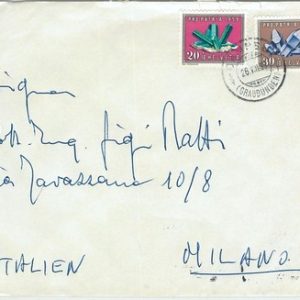 PRO PATRIA 1959
20 HELVETIA
PRO PATRIA
30
(GRAUBÜNDEN)
ignor
ott. Ing. Gigi Ratti
ia Tavazzano 10/8
ITALIEN
MILANO